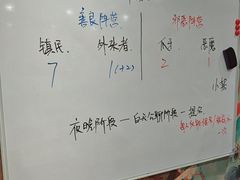 善良阵营 邪恶阵营
镇民 外来者 爪牙 恶魔
7 1(+2) 2 1
夜晚阶段—白天公聊阶段—提名